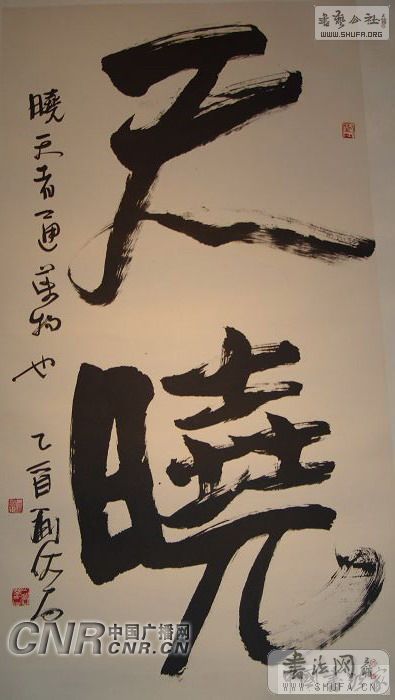 書藝公社
WWW.SHUFA.ORG
天曉
曉天者通萬物也 乙酉
CNR 中国广播网
CNR.CN
书法网
WWW.SHUFA.CN